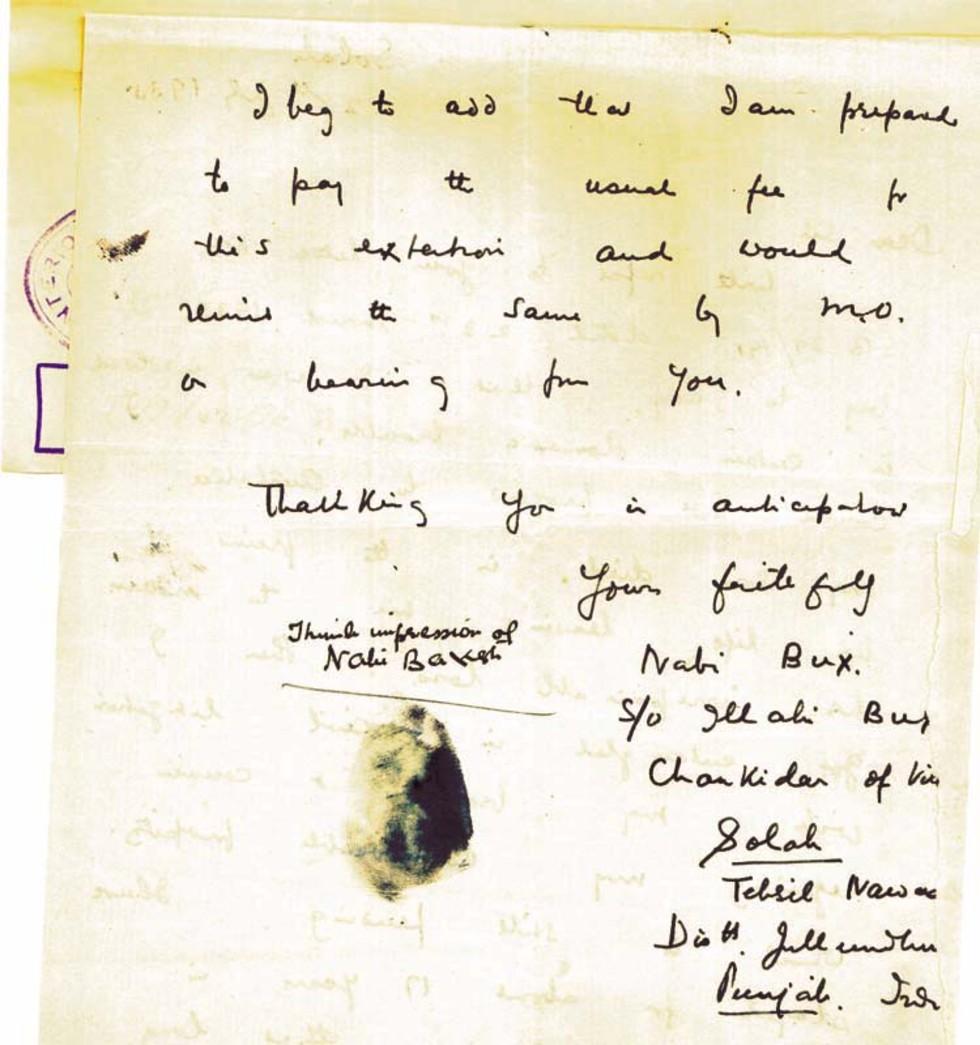 I beg to add that I am prepared
to pay the usual fee for
this extention and would
remit the same by M.O.
on hearing from you.
Thanking you in anticipation
Yours faithfully
Thumb impression of
Nabi Baxesh
Nabi Bux.
S/o Illahi Bux
Chaukidar of
Solah
Tehsil
Distt. Jullundhu
Punjab.